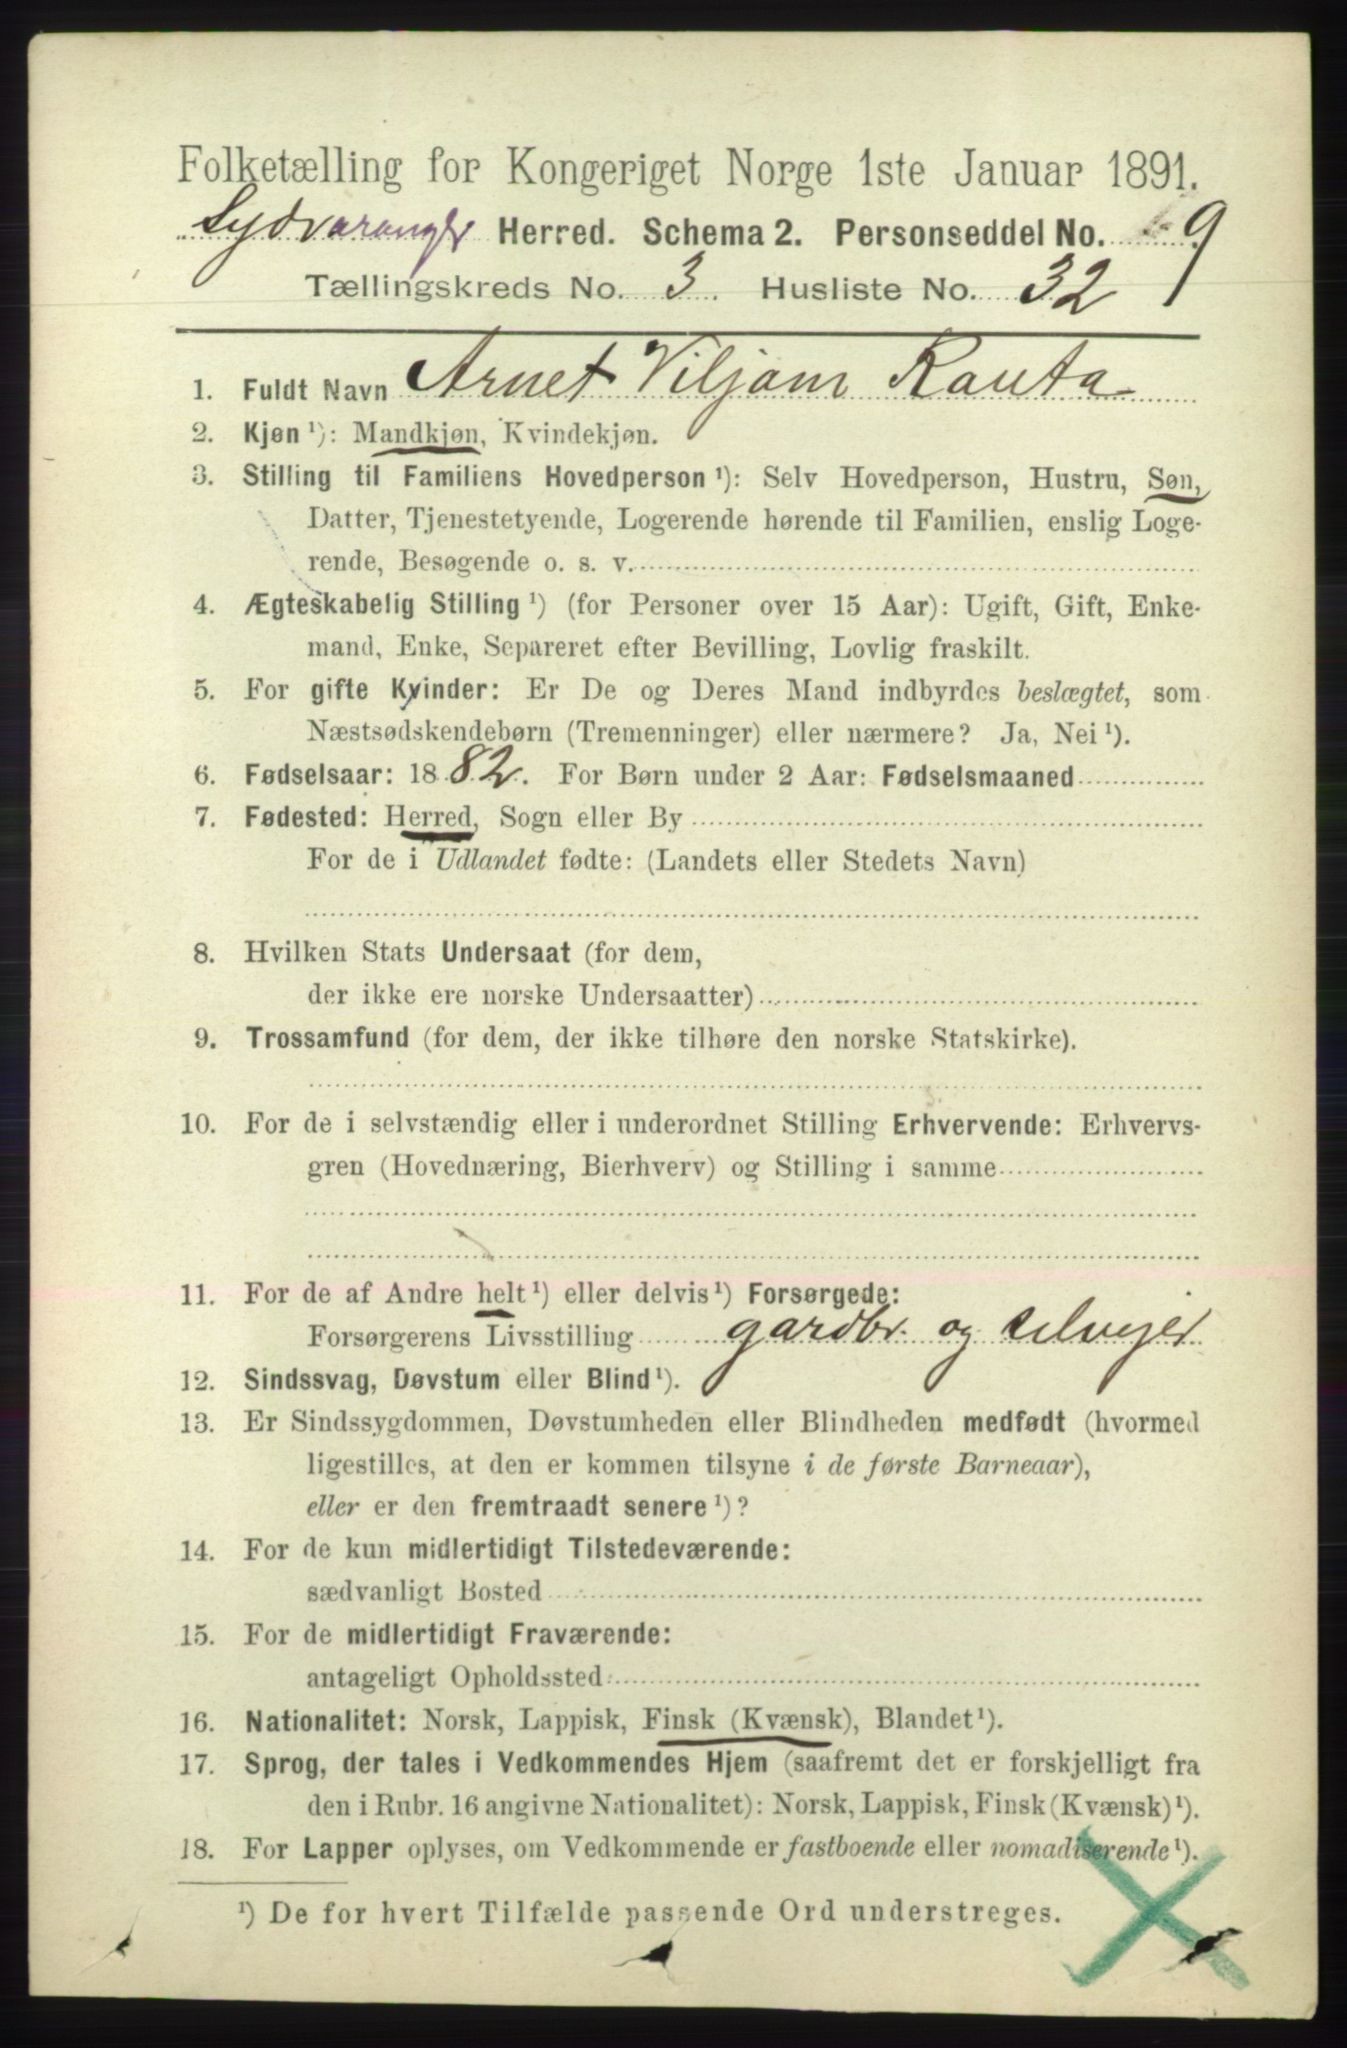 Folketælling for Kongeriget Norge 1ste Januar 1891.
Sydvaranger Herred. Schema 2. Personseddel No. 9
Tællingskreds No. 3. Husliste No. 32
1. Fuldt Navn Arnet Viljam Rauta
2. Kjøn ¹): Mandkjøn, Kvindekjøn.
3. Stilling til Familiens Hovedperson ¹): Selv Hovedperson, Hustru, Søn,
Datter, Tjenestetyende, Logerende hørende til Familien, enslig Loge-
rende, Besøgende o. s. v.
4. Ægteskabelig Stilling ¹) (for Personer over 15 Aar): Ugift, Gift, Enke-
mand, Enke, Separeret efter Bevilling, Lovlig fraskilt.
5. For gifte Kvinder: Er De og Deres Mand indbyrdes beslægtet, som
Næstsødskendebørn (Tremenninger) eller nærmere? Ja, Nei ¹).
6. Fødselsaar: 1882. For Børn under 2 Aar: Fødselsmaaned
7. Fødested: Herred, Sogn eller By
For de i Udlandet fødte: (Landets eller Stedets Navn)
8. Hvilken Stats Undersaat (for dem,
der ikke ere norske Undersaatter)
9. Trossamfund (for dem, der ikke tilhøre den norske Statskirke).
10. For de i selvstændig eller i underordnet Stilling Erhvervende: Erhvervs-
gren (Hovednæring, Bierhverv) og Stilling i samme
11. For de af Andre helt ¹) eller delvis ¹) Forsørgede:
Forsørgerens Livsstilling gardbr. og selvejer
12. Sindssvag, Døvstum eller Blind ¹).
13. Er Sindssygdommen, Døvstumheden eller Blindheden medfødt (hvormed
ligestilles, at den er kommen tilsyne i de første Barneaar),
eller er den fremtraadt senere ¹)?
14. For de kun midlertidigt Tilstedeværende:
sædvanligt Bosted
15. For de midlertidigt Fraværende:
antageligt Opholdssted
16. Nationalitet: Norsk, Lappisk, Finsk (Kvænsk), Blandet ¹).
17. Sprog, der tales i Vedkommendes Hjem (saafremt det er forskjelligt fra
den i Rubr. 16 angivne Nationalitet): Norsk, Lappisk, Finsk (Kvænsk) ¹).
18. For Lapper oplyses, om Vedkommende er fastboende eller nomadiserende ¹).
¹) De for hvert Tilfælde passende Ord understreges.